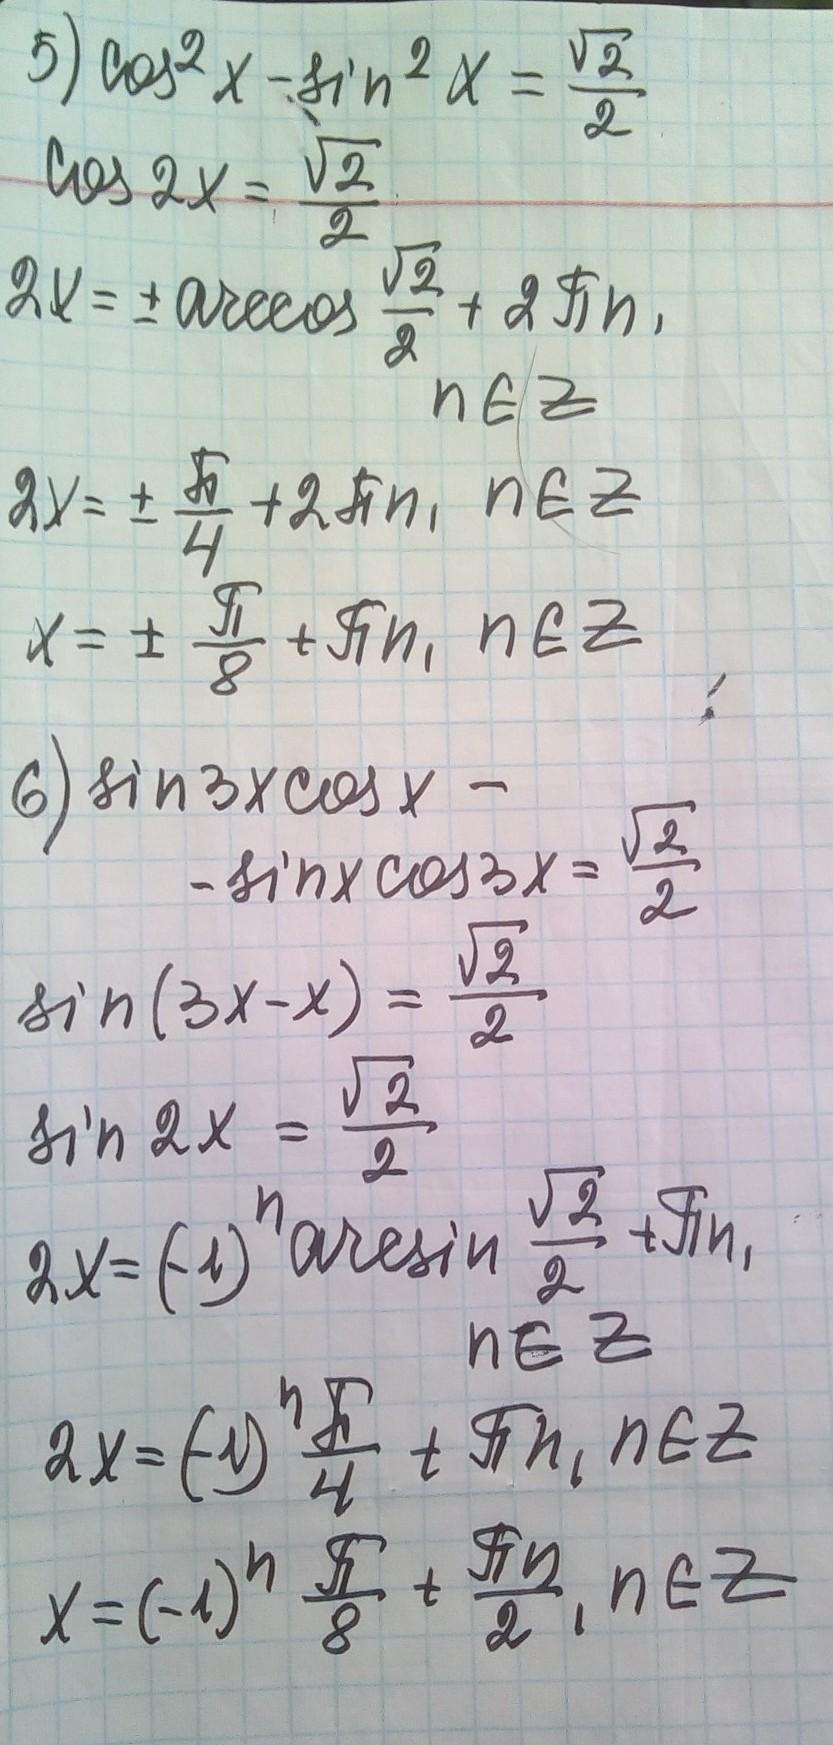 5) cos²x - sin²x = √2/2
cos 2x = √2/2
2x = ± arccos √2/2 + 2πn,
n∈Z
2x = ± π/4 + 2πn, n∈Z
x = ± π/8 + πn, n∈Z
6) sin3xcosx -
- sinxcos3x = √2/2
sin(3x-x) = √2/2
sin 2x = √2/2
2x = (-1)ⁿ arcsin √2/2 + πn,
n∈Z
2x = (-1)ⁿ π/4 + πn, n∈Z
x = (-1)ⁿ π/8 + πn/2, n∈Z